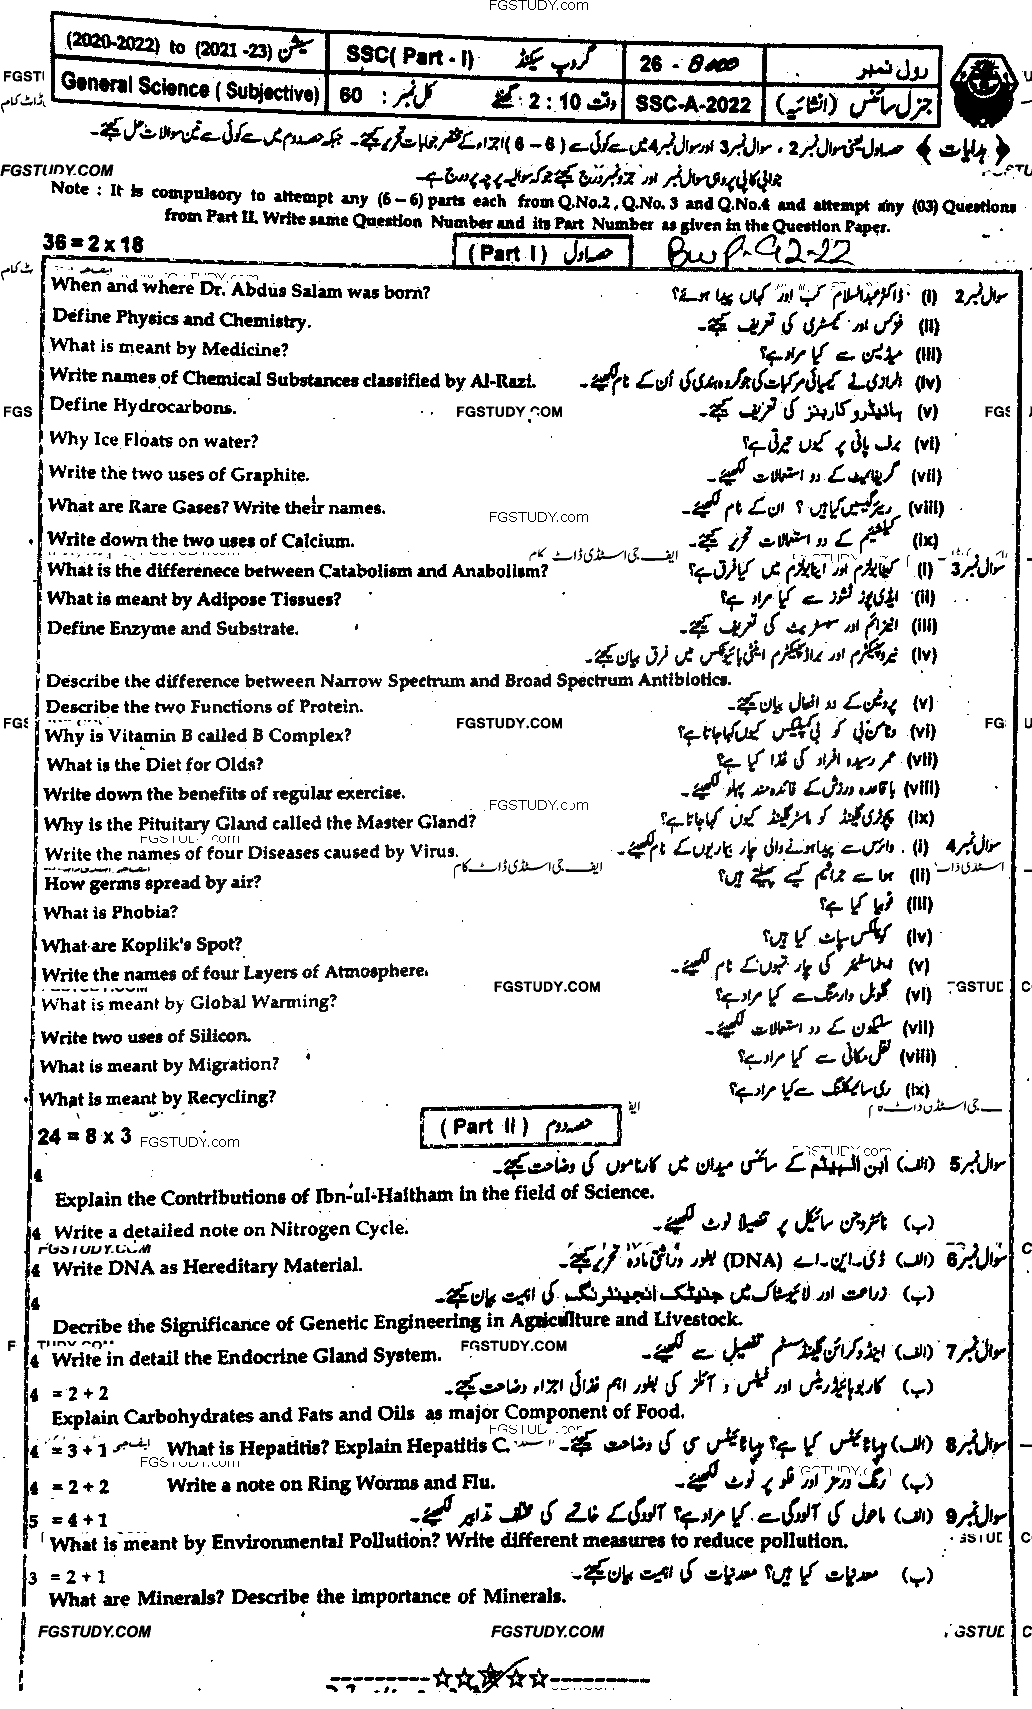 FGSTUDY.com
(2020-2022) to (2021 -23) سیشن SSC( Part - I) گروپ سیکنڈ 26 - 8000 رول نمبر
General Science ( Subjective) 60 کل نمبر : وقت 2 : 10 گھنٹے SSC-A-2022 جنرل سائنس (انشائیہ)
﴿ ہدایات ﴾ حصہ اول یعنی سوال نمبر 2 ، سوال نمبر 3 اور سوال نمبر 4 میں سے کوئی سے (6 - 6) اجزاء کے مختصر جوابات تحریر کیجئے۔ جبکہ حصہ دوم میں سے کوئی سے تین سوالات حل کیجئے۔
FGSTUDY.COM
جوابی کاپی پر وہی سوال نمبر اور جزو نمبر درج کیجئے جو کہ سوالیہ پرچہ پر درج ہے۔
Note : It is compulsory to attempt any (6 – 6) parts each from Q.No.2 , Q.No. 3 and Q.No.4 and attempt any (03) Questions
from Part II. Write same Question Number and its Part Number as given in the Question Paper.
36 = 2 x 18 (Part I) حصہ اول BWP-92-22
When and where Dr. Abdus Salam was born? سوال نمبر 2 (i) ڈاکٹر عبدالسلام کب اور کہاں پیدا ہوئے؟
Define Physics and Chemistry. (ii) فزکس اور کیمسٹری کی تعریف کیجئے۔
What is meant by Medicine? (iii) میڈیسن سے کیا مراد ہے؟
Write names of Chemical Substances classified by Al-Razi. (iv) الرازی نے کیمیائی مرکبات کی جو گروہ بندی کی اُن کے نام لکھیئے۔
Define Hydrocarbons. (v) ہائیڈروکاربنز کی تعریف کیجئے۔
FGSTUDY.COM
Why Ice Floats on water? (vi) برف پانی پر کیوں تیرتی ہے؟
Write the two uses of Graphite. (vii) گریفائیٹ کے دو استعمالات لکھیئے۔
What are Rare Gases? Write their names. (viii) ریئر گیسیں کیا ہیں ؟ ان کے نام لکھیئے۔
FGSTUDY.com
Write down the two uses of Calcium. (ix) کیلشیم کے دو استعمالات تحریر کیجئے۔
ایف جی اسٹڈی ڈاٹ کام
What is the differenece between Catabolism and Anabolism? سوال نمبر 3 (i) کیٹابولزم اور اینابولزم میں کیا فرق ہے؟
What is meant by Adipose Tissues? (ii) ایڈی پوز ٹشوز سے کیا مراد ہے؟
Define Enzyme and Substrate. (iii) انزائم اور سبسٹریٹ کی تعریف کیجئے۔
(iv) نیروسپیکٹرم اور براڈ سپیکٹرم اینٹی بائیوٹکس میں فرق بیان کیجئے۔
Describe the difference between Narrow Spectrum and Broad Spectrum Antibiotics.
Describe the two Functions of Protein. (v) پروٹین کے دو افعال بیان کیجئے۔
FGSTUDY.COM
Why is Vitamin B called B Complex? (vi) وٹامن بی کو بی کمپلیکس کیوں کہا جاتا ہے؟
What is the Diet for Olds? (vii) عمر رسیدہ افراد کی غذا کیا ہے؟
Write down the benefits of regular exercise. (viii) باقاعدہ ورزش کے فائدہ مند پہلو لکھیئے۔
FGSTUDY.com
Why is the Pituitary Gland called the Master Gland? (ix) پچوٹری گلینڈ کو ماسٹر گلینڈ کیوں کہا جاتا ہے؟
Write the names of four Diseases caused by Virus. سوال نمبر 4 (i) وائرس سے پیدا ہونے والی چار بیماریوں کے نام لکھیئے۔
ایف جی اسٹڈی ڈاٹ کام
How germs spread by air? (ii) ہوا سے جراثیم کیسے پھیلتے ہیں؟
What is Phobia? (iii) فوبیا کیا ہے؟
What are Koplik's Spot? (iv) کوپلکس سپاٹ کیا ہیں؟
Write the names of four Layers of Atmosphere. (v) ایٹماسفیئر کی چار تہوں کے نام لکھیئے۔
FGSTUDY.COM
What is meant by Global Warming? (vi) گلوبل وارمنگ سے کیا مراد ہے؟
Write two uses of Silicon. (vii) سلیکون کے دو استعمالات لکھیئے۔
What is meant by Migration? (viii) نقل مکانی سے کیا مراد ہے؟
What is meant by Recycling? (ix) ری سائیکلنگ سے کیا مراد ہے؟
24 = 8 x 3 FGSTUDY.com (Part II) حصہ دوم
4 سوال نمبر 5 (الف) ابن الہیثم کے سائنسی میدان میں کارناموں کی وضاحت کیجئے۔
Explain the Contributions of Ibn-ul-Haitham in the field of Science.
4 Write a detailed note on Nitrogen Cycle. (ب) نائٹروجن سائیکل پر تفصیلاً نوٹ لکھیئے۔
FGSTUDY.COM
4 Write DNA as Hereditary Material. سوال نمبر 6 (الف) ڈی۔این۔اے (DNA) بطور وراثتی مادہ تحریر کیجئے۔
4 (ب) زراعت اور لائیوسٹاک میں جنیٹک انجینئرنگ کی اہمیت بیان کیجئے۔
Decribe the Significance of Genetic Engineering in Agriculture and Livestock.
FGSTUDY.COM
4 Write in detail the Endocrine Gland System. سوال نمبر 7 (الف) اینڈوکرائن گلینڈ سسٹم تفصیل سے لکھیئے۔
4 = 2 + 2 (ب) کاربوہائیڈریٹس اور فیٹس و آئلز کی بطور اہم غذائی اجزاء وضاحت کیجئے۔
Explain Carbohydrates and Fats and Oils as major Component of Food.
4 = 3 + 1 What is Hepatitis? Explain Hepatitis C. سوال نمبر 8 (الف) ہیپاٹائیٹس کیا ہے؟ ہیپاٹائیٹس سی کی وضاحت کیجئے۔
4 = 2 + 2 Write a note on Ring Worms and Flu. (ب) رنگ ورمز اور فلو پر نوٹ لکھیئے۔
5 = 4 + 1 سوال نمبر 9 (الف) ماحول کی آلودگی سے کیا مراد ہے؟ آلودگی کے خاتمے کی مختلف تدابیر لکھیئے۔
What is meant by Environmental Pollution? Write different measures to reduce pollution.
3 = 2 + 1 (ب) معدنیات کیا ہیں؟ معدنیات کی اہمیت بیان کیجئے۔
What are Minerals? Describe the importance of Minerals.
FGSTUDY.COM FGSTUDY.COM